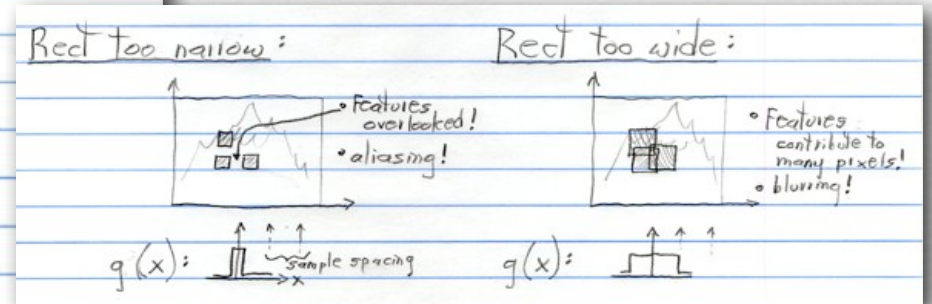 Rect too narrow:
• Features overlooked!
• aliasing!
g(x):
sample spacing
x
Rect too wide:
• Features contribute to many pixels!
• blurring!
g(x):